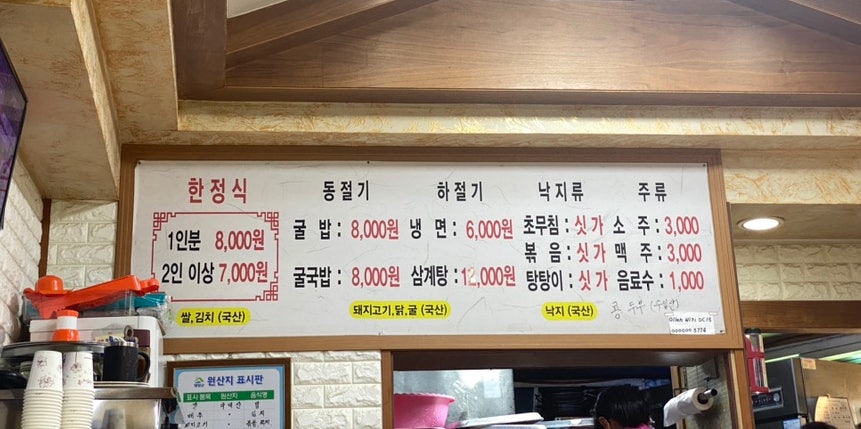 한정식
1인분 8,000원
2인 이상 7,000원
쌀,김치 (국산)
동절기
굴 밥 : 8,000원
굴국밥 : 8,000원
돼지고기,닭,굴 (국산)
하절기
냉 면 : 6,000원
삼계탕 : 12,000원
낙지류
초무침 : 싯가
볶 음 : 싯가
탕탕이 : 싯가
낙지 (국산)
주류
소 주 : 3,000
맥 주 : 3,000
음료수 : 1,000
콩 두부 (수입산)
원산지 표시판
표시 품목 원산지 음식명
쌀 국내산 밥
배추
돼지고기